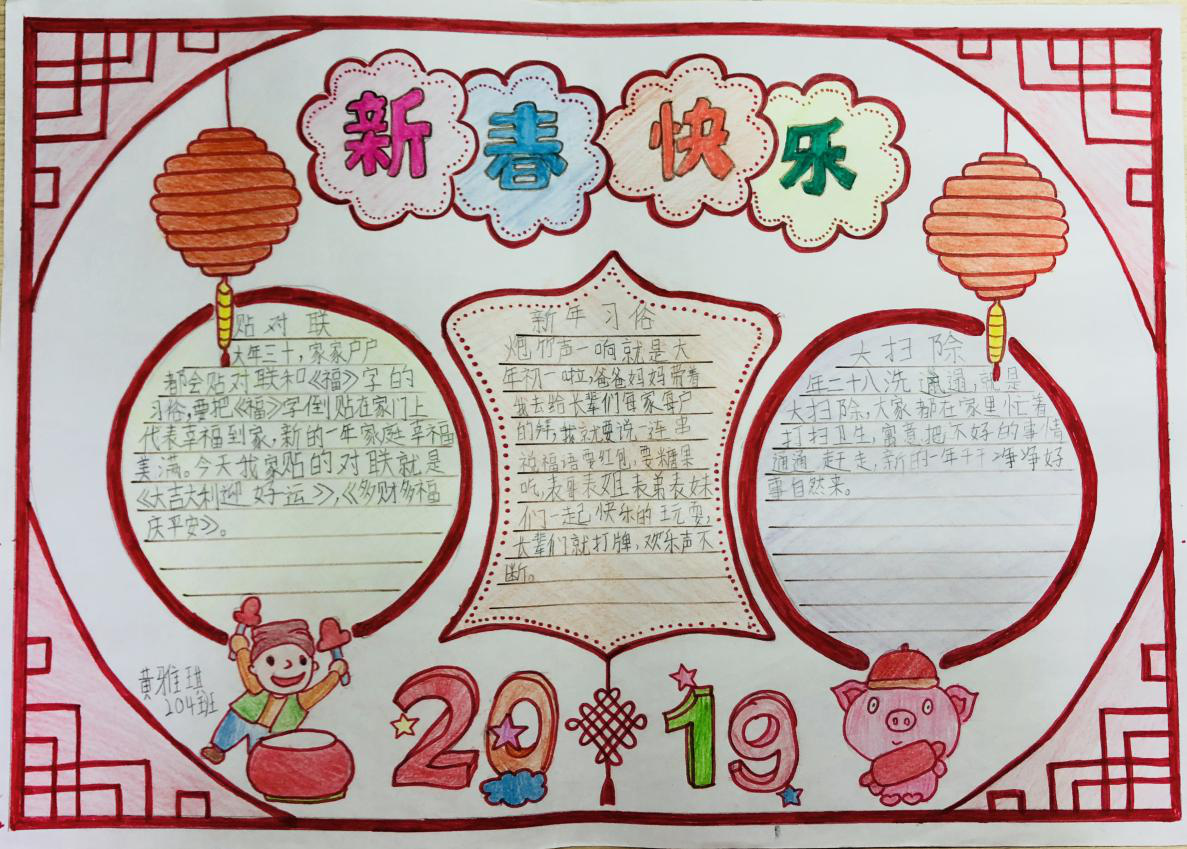 新春快乐
贴对联
大年三十，家家户户
都会贴对联和《福》字的
习俗，要把《福》字倒贴在家门上
代表幸福到家，新的一年家庭幸福
美满。今天我家贴的对联就是
《大吉大利迎好运》，《多财多福
庆平安》。
新年习俗
炮竹声一响就是大
年初一啦，爸爸妈妈带着
我去给长辈们每家每户
的拜，我就要说一连串
祝福语要红包，要糖果
吃，表哥表姐表弟表妹
们一起快乐的玩耍，
长辈们就打牌，欢乐声不
断。
大扫除
年二十八洗邋遢，就是
大扫除，大家都在家里忙着
打扫卫生，寓意把不好的事情
通通赶走，新的一年干干净净好
事自然来。
黄雅琪
204班
2019